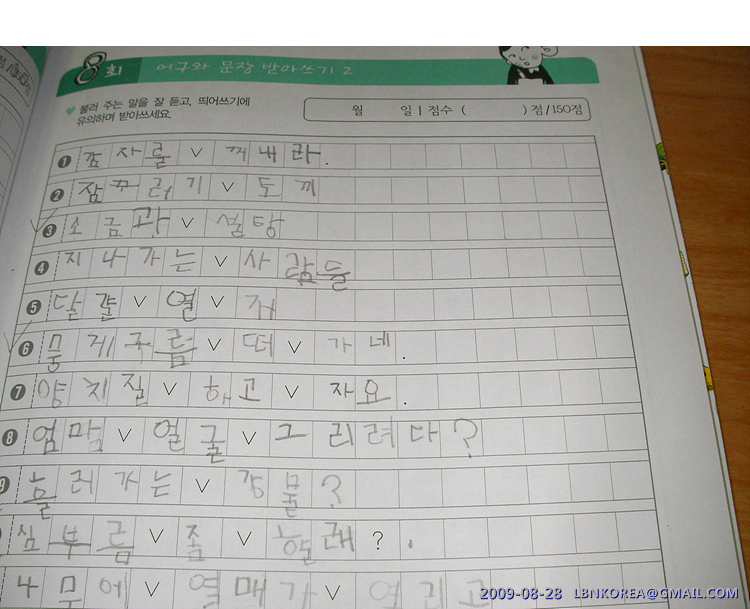 8회 어구와 문장 받아쓰기 2
불러 주는 말을 잘 듣고, 띄어쓰기에
유의하며 받아쓰세요.
월 일 | 점수 ( ) 점/150점
1 감자를 ∨ 꺼내라.
2 잠꾸러기 ∨ 토끼
3 소금과 ∨ 설탕
4 지나가는 ∨ 사람들
5 달걀 ∨ 열 ∨ 개
6 뭉게구름 ∨ 떠 ∨ 가네.
7 양치질 ∨ 하고 ∨ 자요.
8 엄마 ∨ 얼굴 ∨ 그리려다?
9 흘러가는 ∨ 강물?
심부름 ∨ 좀 ∨ 할래?.
나무에 ∨ 열매가 ∨ 열리고
2009-08-28 LBNKOREA@GMAIL.COM